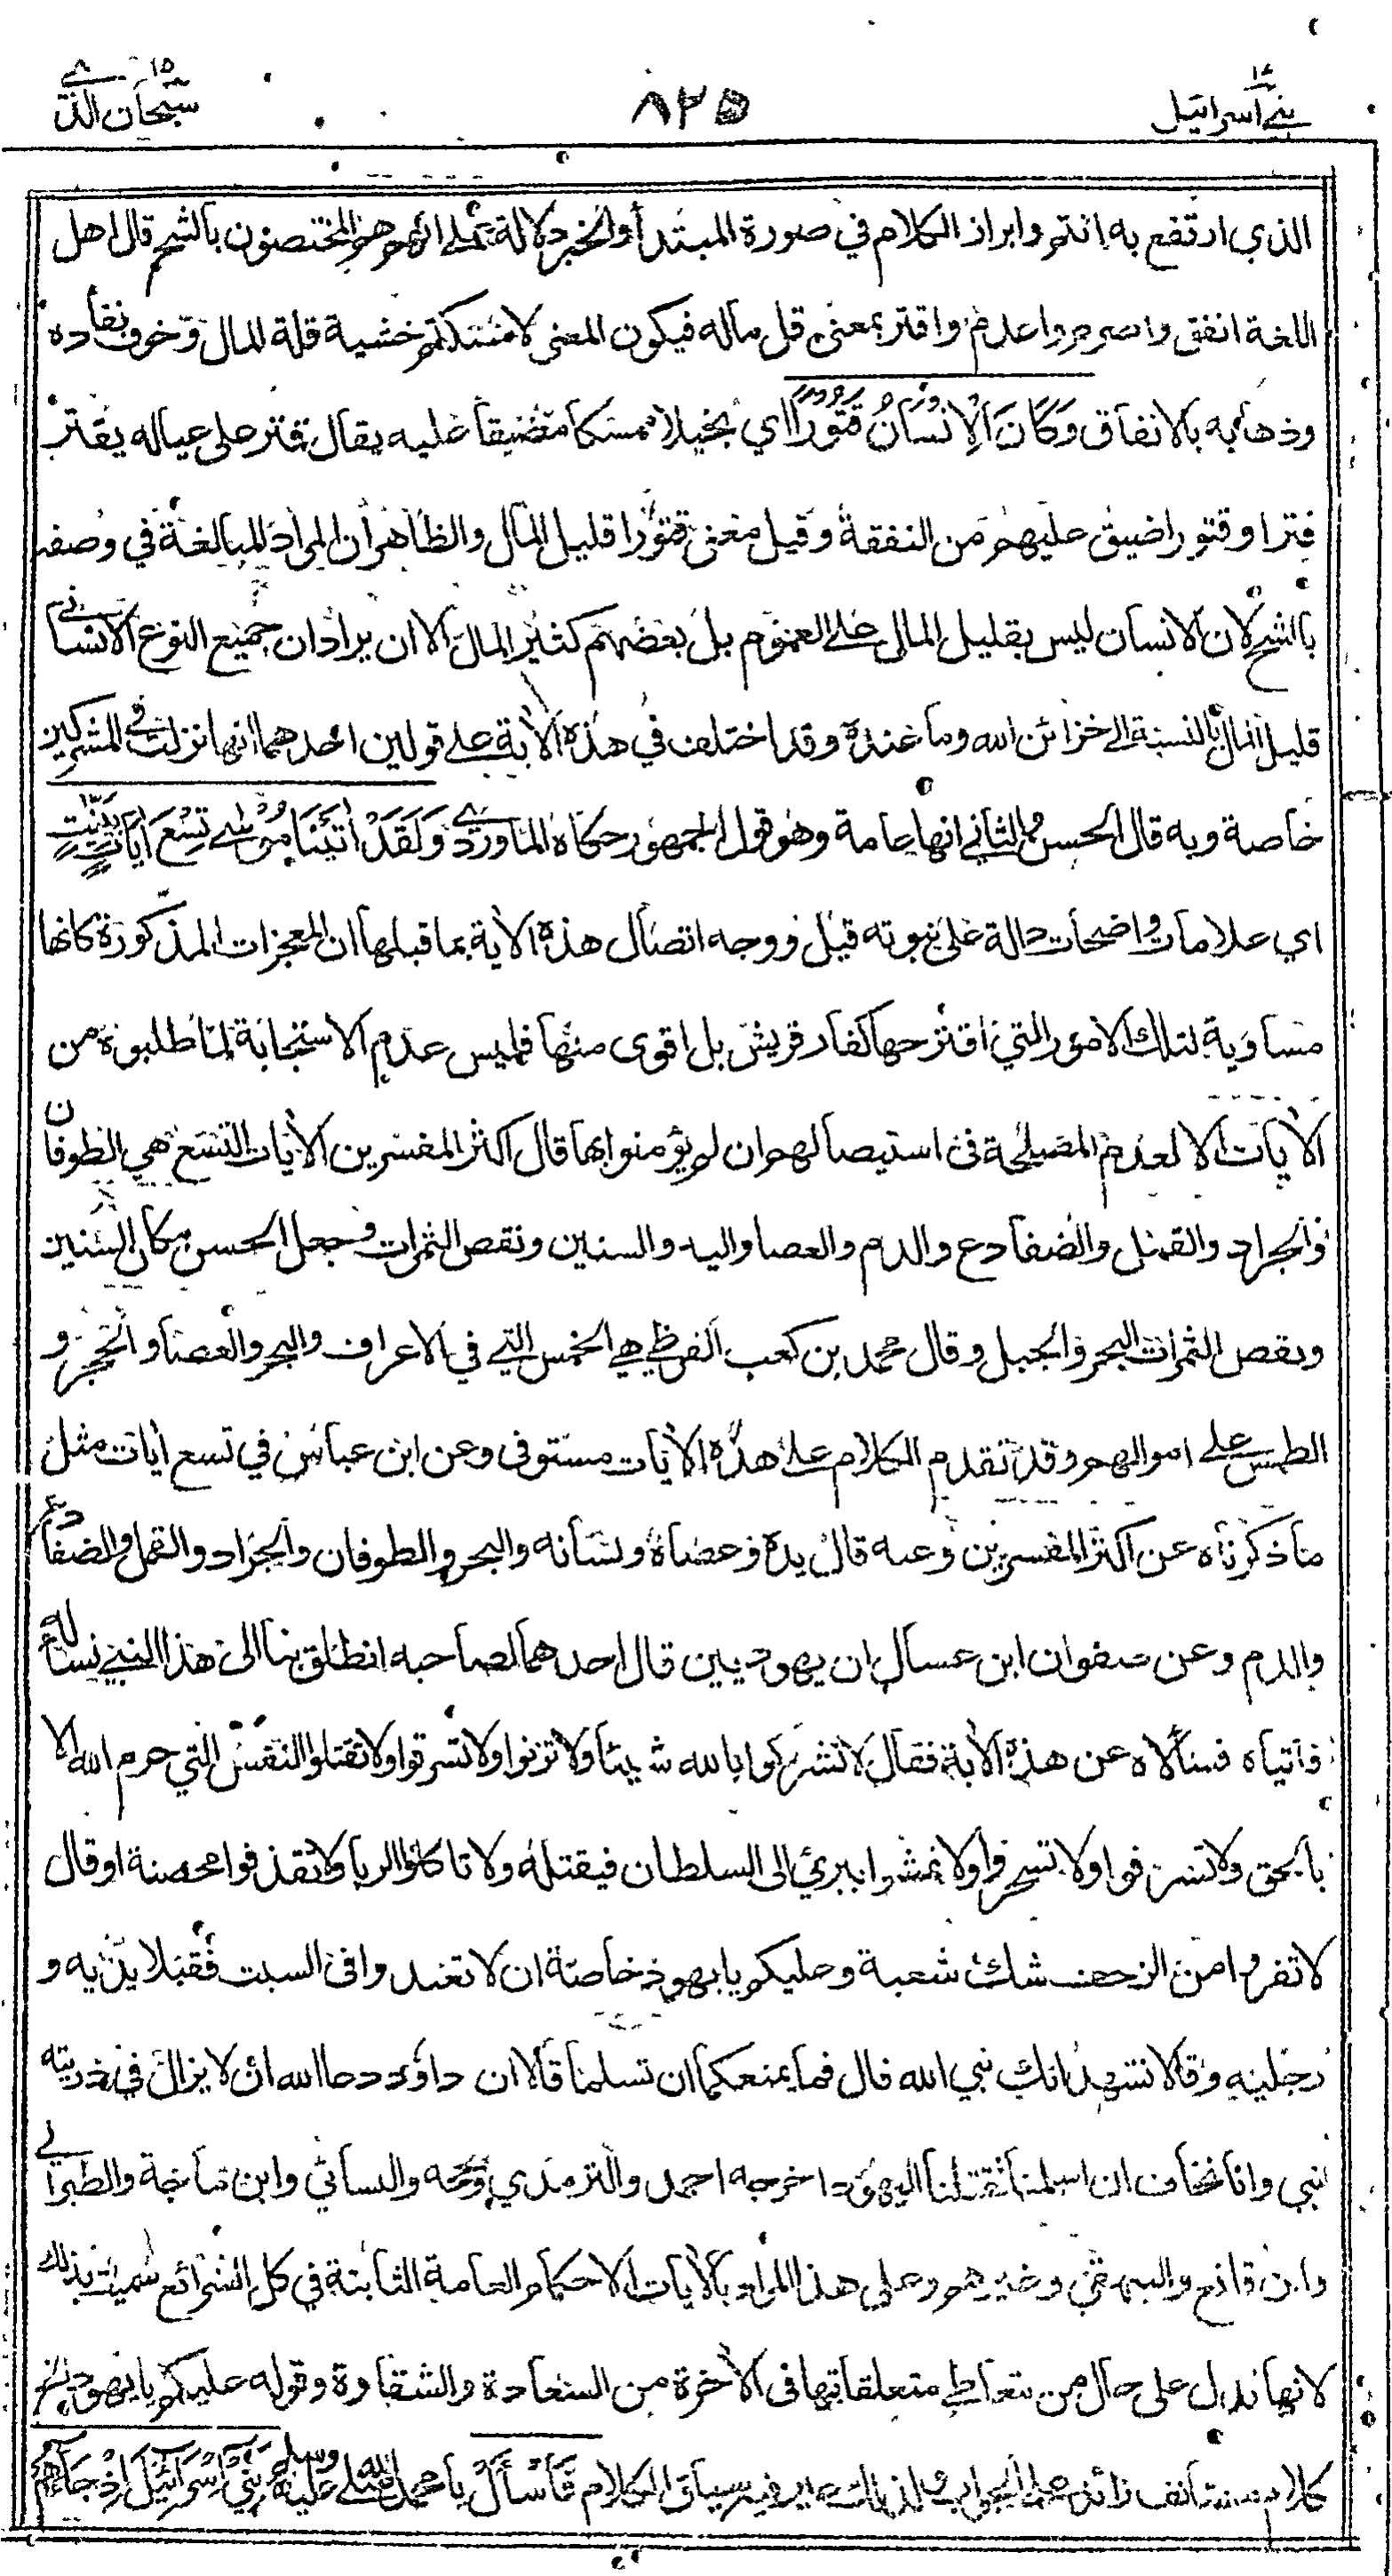 بني اسرائيل ١٧
٨٢٥
سبحان الذي ١٥
الذي ارتفع به انتم وابراز الكلام في صورة المبتدأ والخبر دلالة على انهم هم المختصون بالشح قال اهل
اللغة انفق واصرم واعدم واقتر بمعنى قل ماله فيكون المعنى لامسكتم خشية قلة المال وخوف نفاده
وذهابه بالانفاق وَكَانَ الْاِنْسَانُ قَتُوْرًا اي بخيلا ممسكا مضيقا عليه يقال قتر على عياله يقتر
قترا وقتورا ضيق عليهم من النفقة وقيل معنى قتورا قليل المال والظاهر ان المراد المبالغة في وصفه
بالشح لان الانسان ليس بقليل المال على العموم بل بعضهم كثير المال الا ان يراد ان جميع النوع الانساني
قليل المال بالنسبة الى خزائن الله وما عنده وقد اختلف في هذه الاية على قولين احدهما انها نزلت في المشركين
خاصة وبه قال الحسن والثاني انها عامة وهو قول الجمهور حكاه الماوردي وَلَقَدْ اٰتَيْنَا مُوْسٰى تِسْعَ اٰيَاتٍ بَيِّنٰتٍ
اي علامات واضحات دالة على نبوته قيل ووجه اتصال هذه الاية بما قبلها ان المعجزات المذكورة كانها
مساوية لتلك الامور التي اقترحها كفار قريش بل اقوى منها فليس عدم الاستجابة لما طلبوه من
الايات الا لعدم المصلحة في استيصالهم ان لم يؤمنوا بها قال اكثر المفسرين الايات التسع هي الطوفان
والجراد والقمل والضفادع والدم والعصا واليد والسنين ونقص الثمرات وجعل الحسن مكان السنين
ونقص الثمرات البحر والجبل وقال محمد بن كعب القرظي هي الخمس التي في الاعراف والبحر والعصا والحجر و
الطمس على اموالهم وقد تقدم الكلام على هذه الايات مستوفى وعن ابن عباس في تسع ايات مثل
ما ذكرناه عن اكثر المفسرين وعنه قال يده وعصاه ولسانه والبحر والطوفان والجراد والقمل والضفادع
والدم وعن صفوان ابن عسال ان يهوديين قال احدهما لصاحبه انطلق بنا الى هذا النبي نساله
فاتياه فسألاه عن هذه الاية فقال لا تشركوا بالله شيئا ولا تزنوا ولا تسرقوا ولا تقتلوا النفس التي حرم الله الا
بالحق ولا تسرفوا ولا تسحروا ولا تمشوا ببريئ الى السلطان فيقتله ولا تاكلوا الربا ولا تقذفوا محصنة او قال
لا تفروا من الزحف شك شعبة وعليكم يا يهود خاصة ان لا تعتدوا في السبت فقبلا يديه و
رجليه وقالا نشهد انك نبي الله قال فما يمنعكما ان تسلما قالا ان داؤد دعا الله ان لا يزال في ذريته
نبي وانا نخاف ان اسلمنا تقتلنا اليهود اخرجه احمد والترمذي وصححه والنسائي وابن ماجة والطبراني
وابن قانع والبيهقي وغيرهم وعلى هذا المراد بالايات الاحكام العامة الثابتة في كل الشرائع سميت بذلك
لانها تدل على حال من يتعاطى متعلقاتها في الاخرة من السعادة والشقاوة وقوله عليكم يا يهود الخ
كلام مستانف زائد على الجواب ولذلك غير فيه سياق الكلام فَاسْأَلْ يا محمد صلى الله عليه وسلم بَنِيْ اِسْرَآئِيْلَ اِذْ جَآءَهُمْ